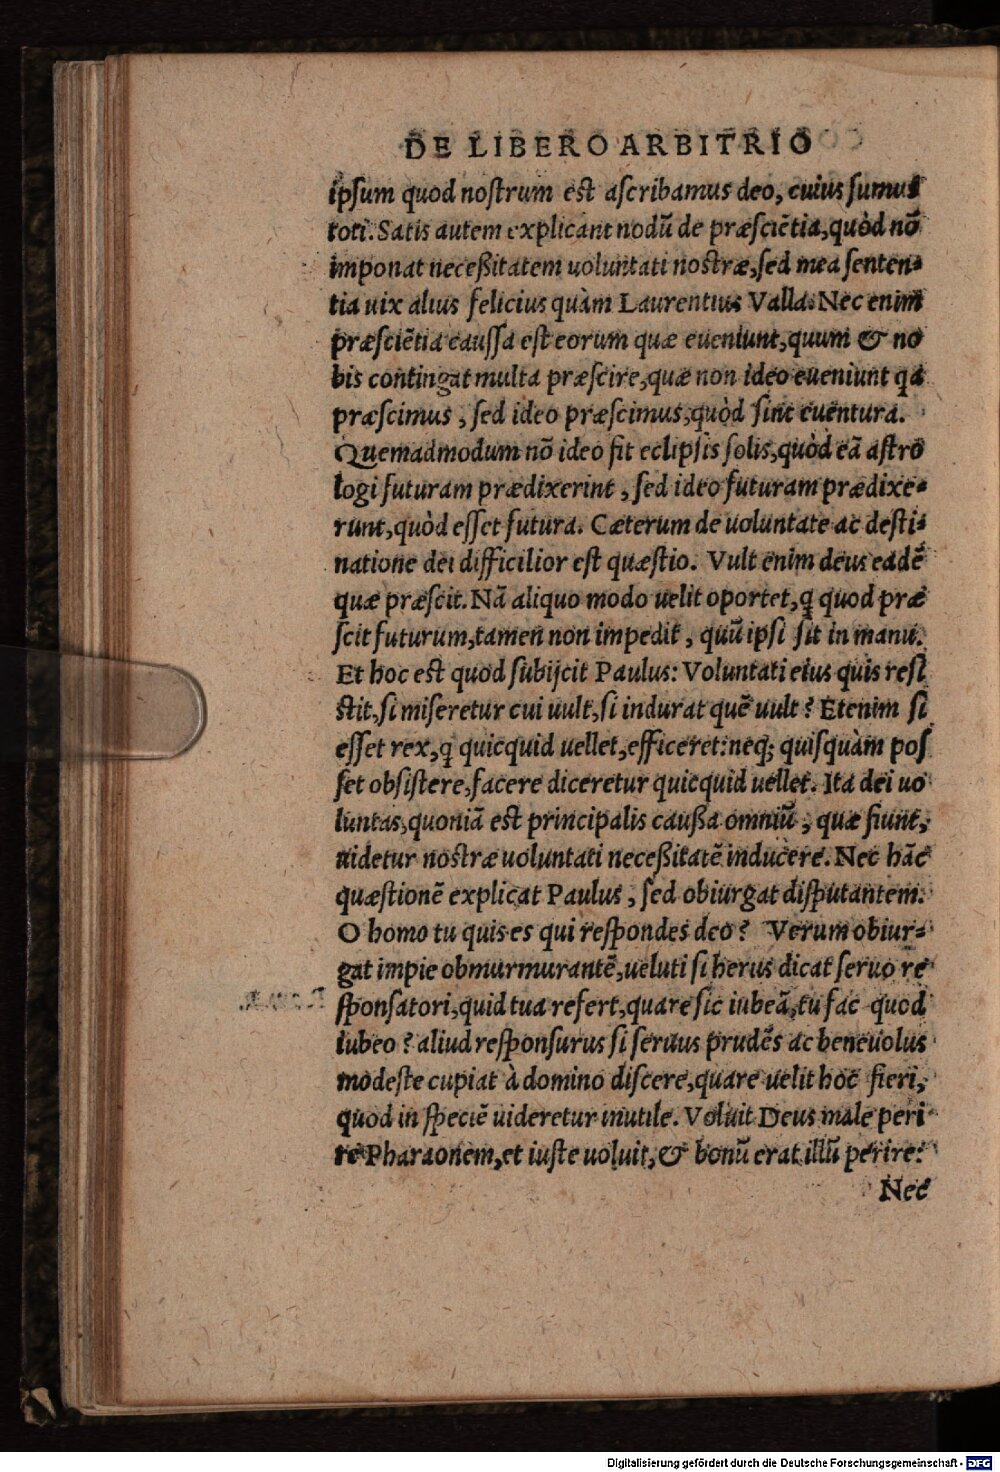 DE LIBERO ARBITRIO
ipsum quod nostrum est ascribamus deo, cuius sumus
toti. Satis autem explicant nodū de præsciētia, quòd nō
imponat neceßitatem uoluntati nostræ, sed mea senten-
tia uix alius felicius quàm Laurentius Valla. Nec enim
præsciētia caussa est eorum quæ eueniunt, quum & no
bis contingat multa præscire, quæ non ideo eueniunt qa
præscimus, sed ideo præscimus, quòd sint euentura.
Quemadmodum nō ideo fit eclipsis solis, quòd eā astro
logi futuram prædixerint, sed ideo futuram prædixe-
runt, quòd esset futura. Cæterum de uoluntate ac desti-
natione dei difficilior est quæstio. Vult enim deus eadē
quæ præscit. Nā aliquo modo uelit oportet, q̨ quod præ
scit futurum, tamen non impedit, quū ipsi sit in manu.
Et hoc est quod subijcit Paulus: Voluntati eius quis resi
stit, si miseretur cui uult, si indurat quē uult? Etenim si
esset rex, q̨ quicquid uellet, efficeret: neq; quisquàm pos
set obsistere, facere diceretur quicquid uellet. Ita dei uo
luntas, quoniā est principalis caußa omniū, quæ fiunt,
uidetur nostræ uoluntati neceßitatē inducere. Nec hāc
quæstionē explicat Paulus, sed obiurgat disputantem.
O homo tu quis es qui respondes deo? Verum obiur-
gat impie obmurmurantē, ueluti si herus dicat seruo re
sponsatori, quid tua refert, quare sic iubeā, tu fac quod
iubeo? aliud responsurus si seruus prudēs ac beneuolus
modeste cupiat à domino discere, quare uelit hoc fieri,
quod in speciē uideretur inutile. Voluit Deus male peri
re Pharaonem, et iuste uoluit, & bonū erat illū perire:
Nec
Digitalisierung gefördert durch die Deutsche Forschungsgemeinschaft - DFG